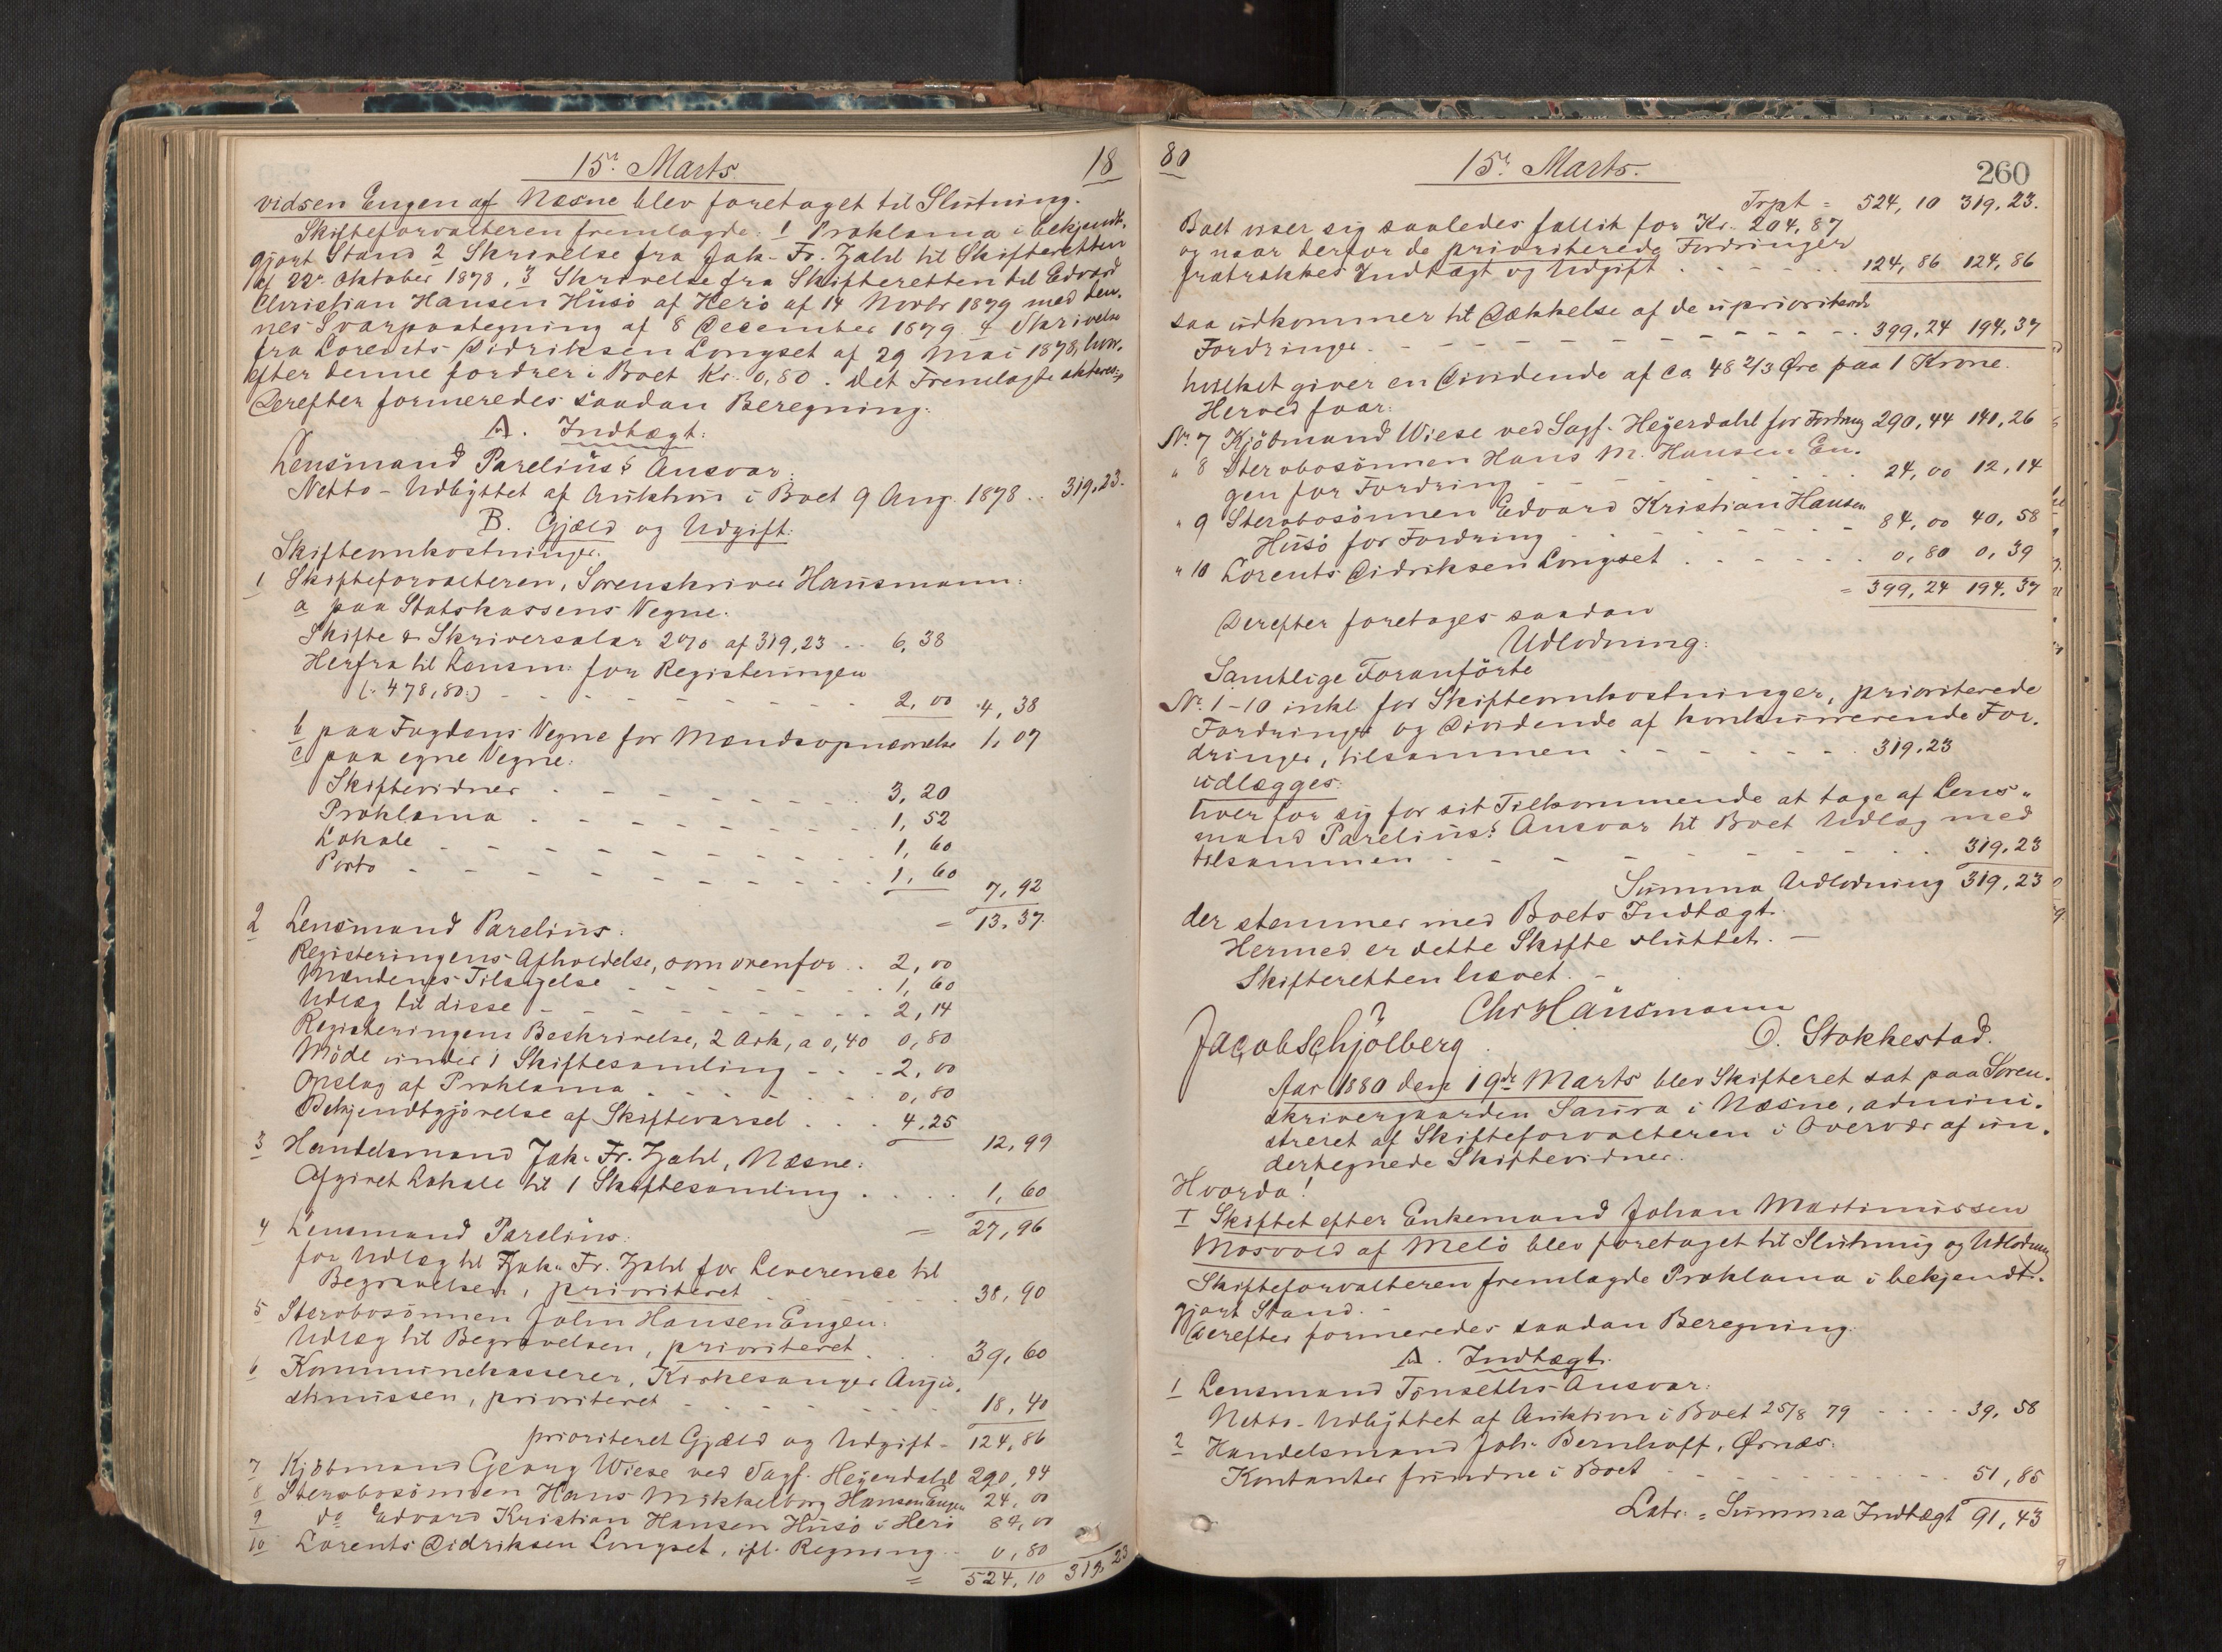 15: Marts.
18
vidsen Engen af Næsne blev foretaget til Slutning.
Skifteforvalteren fremlagde: 1 Proklama i bekjendt-
gjort Stand 2 Skrivelse fra Jak. Fr. Zahl til Skifteretten
af 22: Oktober 1878, 3 Skrivelse fra Skifteretten til Edvard
Christian Hansen Husö af Herö af 14 Novbr 1879 med den-
nes Svarpaategning af 8 December 1879. 4 Skrivelse
fra Lorents Didriksen Longset af 29 Mai 1878, hvor-
efter denne fordrer i Boet Kr. 0,80. Det Fremlagte akteres.
Derefter formeredes saadan Beregning:
A. Indtægt:
Lensmand Parelius's Ansvar:
Netto-Udbyttet af Auktion i Boet 9 Aug. 1878 .. 319,23.
B. Gjæld og Udgift:
Skifteomkostninger.
1 Skifteforvalteren, Sorenskriver Hausmann:
a paa Statskassens Vegne.
Skifte & Skriversalær 2% af 319,23 .. 6,38
Herfra til Lensm: for Registeringen
(: 478,80:) - - - 2,00 4,38
b paa Fogdens Vegne for Mændsopnævnelse 1,07
c paa egne Vegne:
Skiftevidner - - - 3,20
Proklama - - - 1,52
Lokale - - - 1,60
Porto - - - 1,60
7,92
= 13,37
2 Lensmand Parelius:
Registeringens Afholdelse, som ovenfor .. 2,00
Mændenes Tilsigelse - - - 1,60
Udlæg til disse - - - 2,14
Registeringens Beskrivelse, 2 Ark, a 0,40 0,80
Möde under 1 Skiftesamling - - - 2,00
Opslag af Proklama - - - 0,80
Bekjendtgjörelse af Skiftevarsel . . . 4,25
12,99
3 Handelsmand Jak. Fr. Zahl, Næsne:
Afgivet Lokale til 1 Skiftesamling . . . 1,60
= 27,96
4 Lensmand Parelius:
for Udlæg til Jak. Fr. Zahl for Leverence til
Begravelsen, prioriteret - - - 38,90
5 Stervbosönnen John Hansen Engen:
Udlæg til Begravelsen, prioriteret . . . 39,60
6 Kommunekasserer, Kirkesanger
prioriteret - - - 18,40
prioriteret Gjæld og Udgift - 124,86
7 Kjöbmand Georg Wiese ved Sagf. Heyerdahl 290,44
8 Stervbosönnen Hans Mikkelborg Hansen Engen 24,00
9 do Edvard Kristian Hansen Husö i Herö 84,00
10 Lorents Didriksen Longset, ifl. Regning .. 0,80
= 524,10 319,23
80
15: Marts.
260
Trpt = 524,10 319,23.
Boet viser sig saaledes fallit for Kr. 204,87
og naar derfor de prioriterede Fordringer
fratrækkes Indtægt og Udgift . . . 124,86 124,86
saa udkommer til Dækkelse af de uprioriterede
Fordringer - - - 399,24 194,37
hvilket giver en Dividende af ca 48 2/3 Öre paa 1 Krone.
Herved faar:
No. 7 Kjöbmand Wiese ved Sagf. Heyerdahl for Fordring 290,44 141,26
" 8 Stervbosönnen Hans M. Hansen En-
gen for Fordring - - - 24,00 12,14
" 9 Stervbosönnen Edvard Kristian Hansen
Husö for Fordring - - - 84,00 40,58
" 10 Lorents Didriksen Longset . . . 0,80 0,39
= 399,24 194,37
Derefter foretages saadan
Udlodning:
Samtlige Foranförte
No. 1-10 inkl for Skifteomkostninger, prioriterede
Fordringer og Dividende af konkurrerende For-
dringer, tilsammen - - - 319,23
udlægges:
hver for sig for sit Tilkommende at tage af Lens-
mand Parelius's Ansvar til Boet Udlæg med
tilsammen - - - 319,23
Summa Udlodning 319,23
der stemmer med Boets Indtægt.
Hermed er dette Skifte sluttet. -
Skifteretten hævet. -
Chr Hausmann
Jacob Schjölberg. O. Stokkestad.
Aar 1880 den 19de Marts blev Skifteret sat paa Soren-
skrivergaarden Saura i Næsne, admini-
streret af Skifteforvalteren i Overvær af un-
dertegnede Skiftevidner.
Hvorda!
I Skiftet efter Enkemand Johan Martinussen
Mosvold af Melö blev foretaget til Slutning og Udlodning
Skifteforvalteren fremlagde Proklama i bekjendt-
gjort Stand. -
Derefter formeredes saadan Beregning:
A. Indtægt.
1 Lensmand Tönseths Ansvar:
Netto-Udbyttet af Auktion i Boet 25/8 79 . . . . 39,58
2 Handelsmand Joh. Bernhoff, Ørnæs:
Kontanter fundne i Boet - - - 51,85
Latr. = Summa Indtægt 91,43